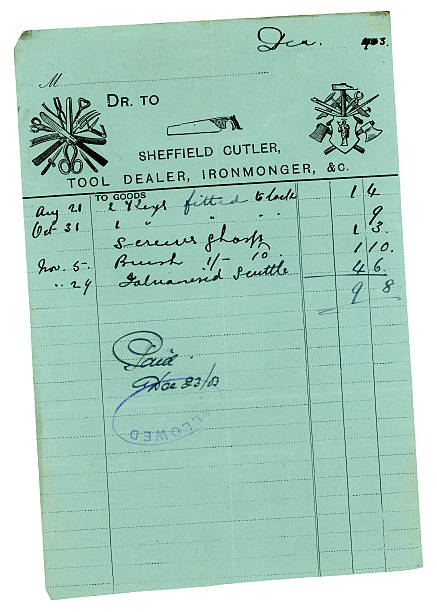 Dec. 1903.
M
DR. TO
SHEFFIELD CUTLER,
TOOL DEALER, IRONMONGER, &C.
TO GOODS
Aug 21 2 Keys fitted to lock 1 4
Oct 31 1 " " " 9
Screws & hasp 1 3.
Nov. 5. Brush 1/- 10 1 10.
" 24 Galvanised Scuttle 4 6.
9 8
Paid
Dec 23/03
ALLOWED